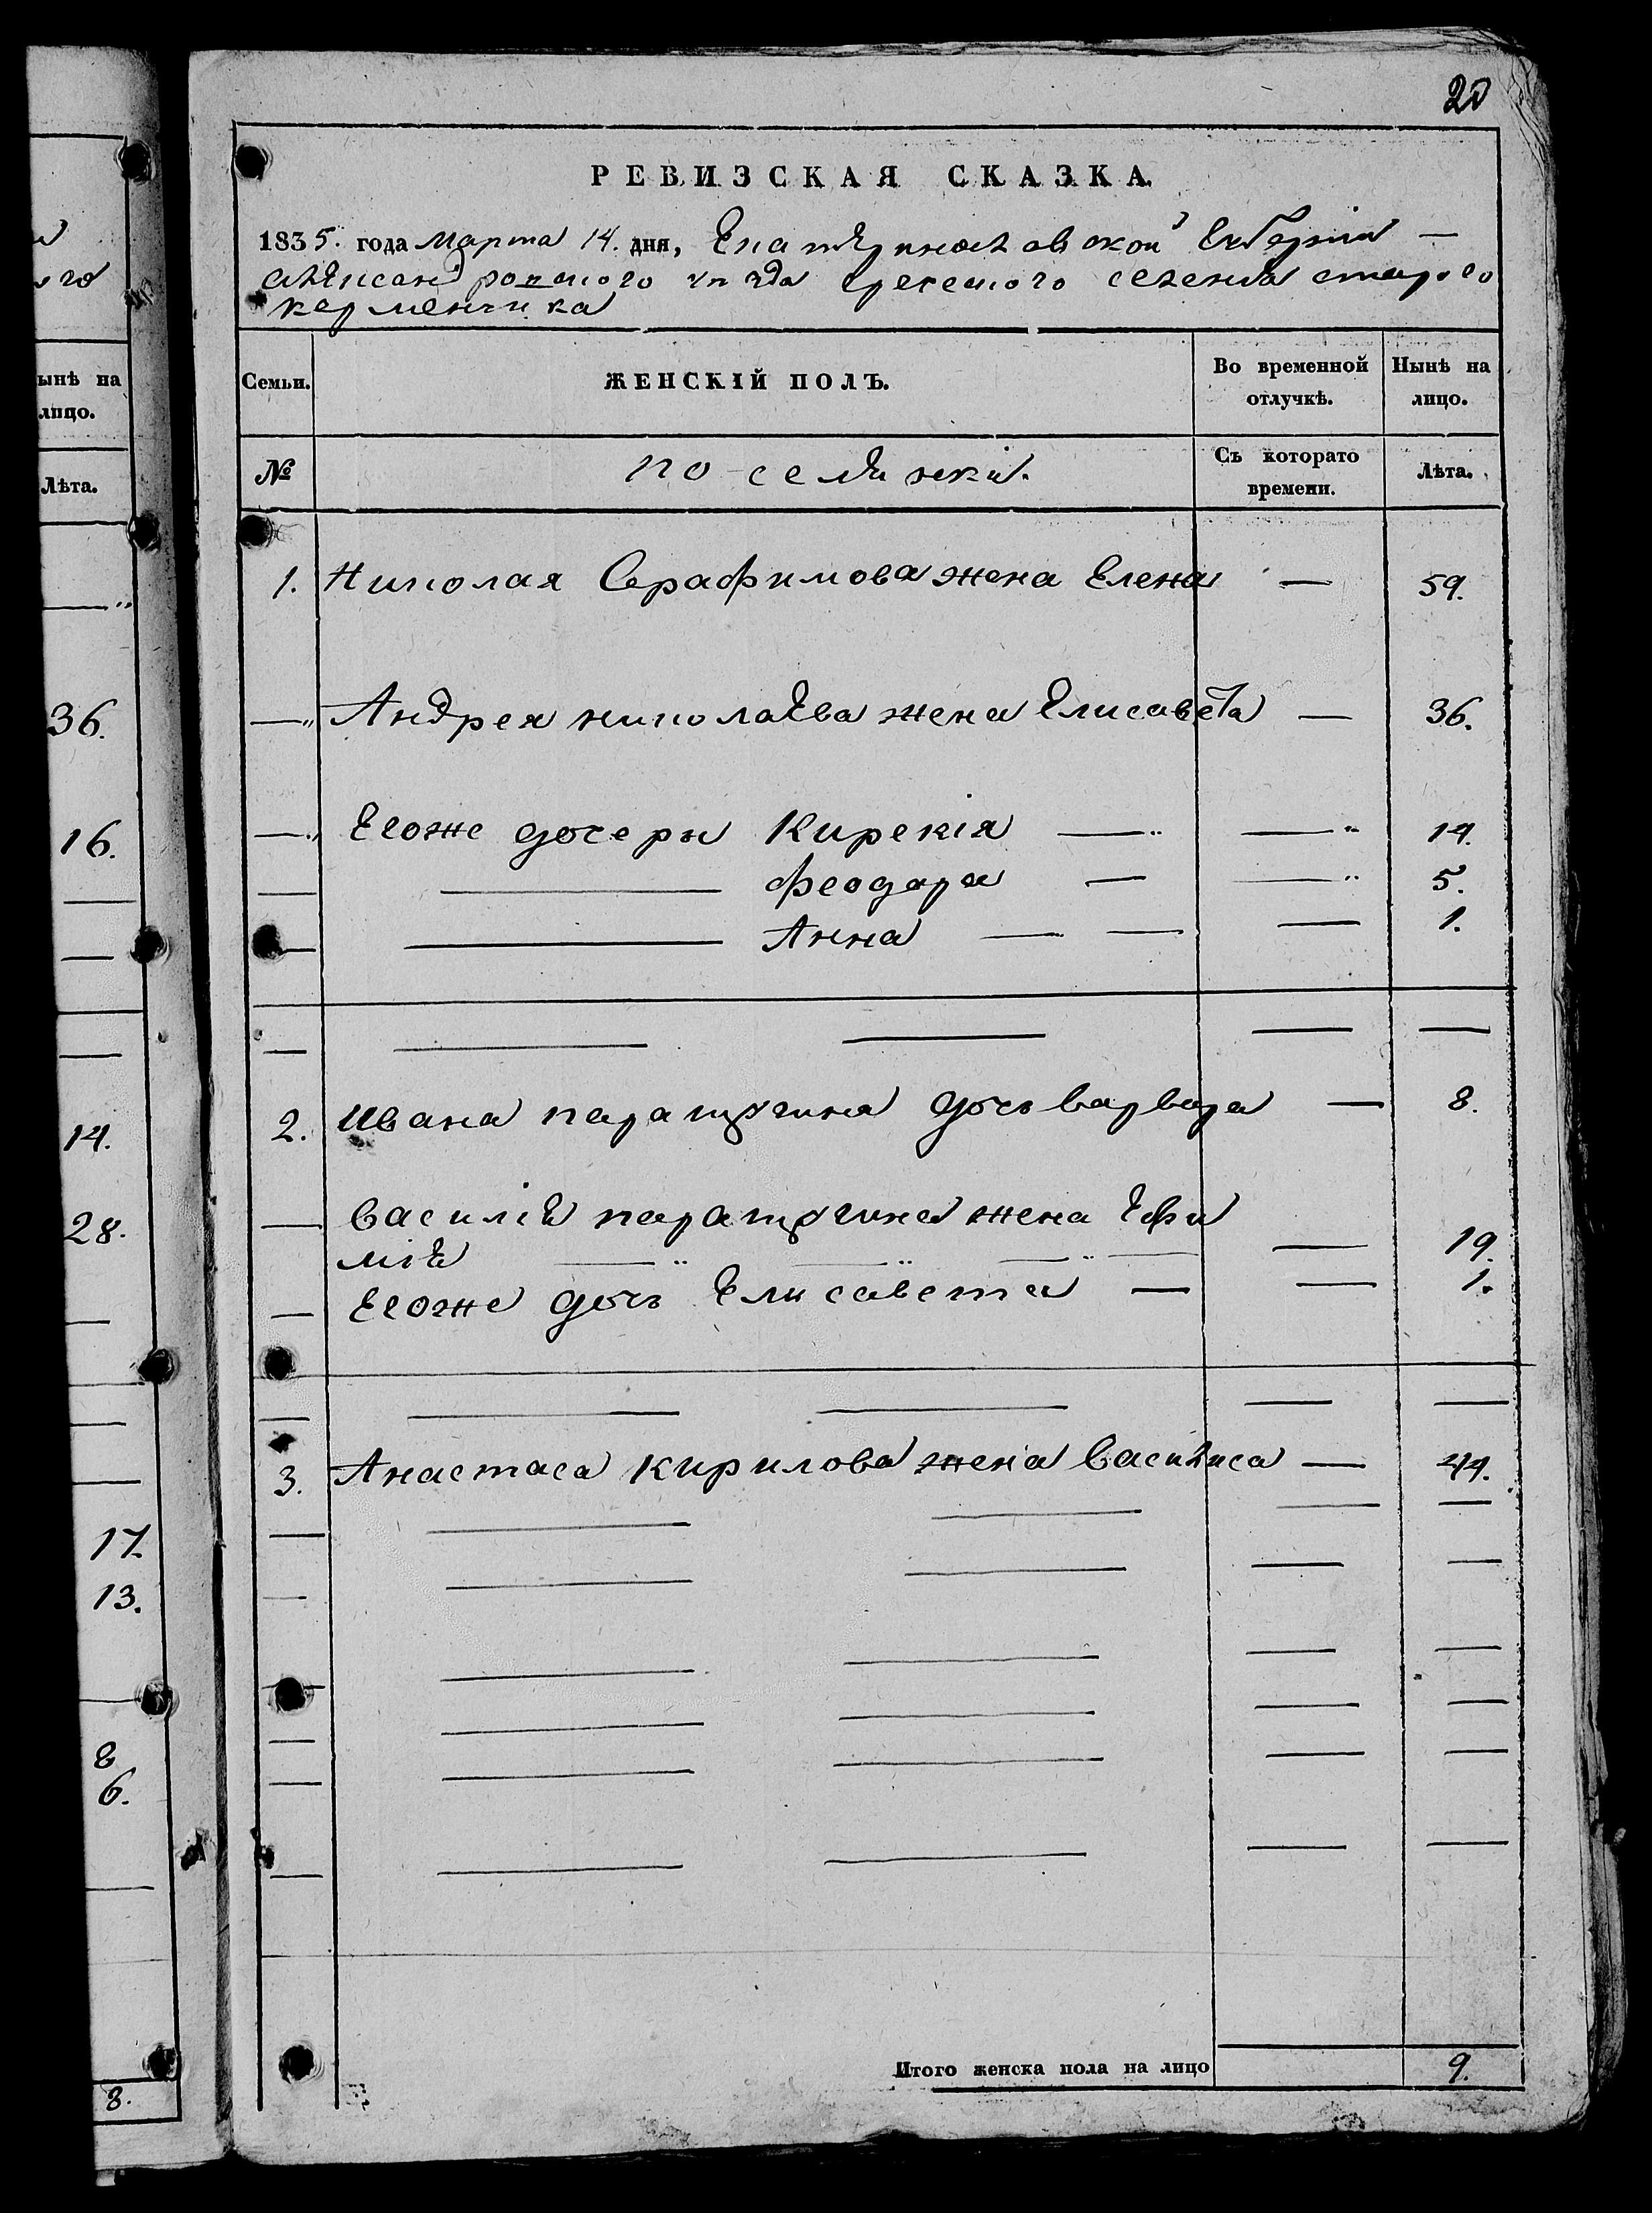 20
РЕВИЗСКАЯ СКАЗКА
1835. года марта 14. дня, Екатеринославской Губернии —
александровского уезда греческого селения старого
керменчика
Семьи.
ЖЕНСКІЙ ПОЛЪ.
Во временной отлучкѣ.
Нынѣ на лицо.
№
поселянскій.
Съ которато времени.
Лѣта.
1. Николая Серафимова жена Елена — 59.
—„ Андрея николаева жена Елисавета — 36.
—„ Егоже дочеры Кирекія — — 14.
— феодора — — 5.
— Анна — — — 1.
2. Ивана паращукина дочь варвара — 8.
— Василіи паращукина жена Ефи
міи — 19.
— Егоже дочь Елисавета — — 1.
3. Анастаса Кирилова жена Василиса — 44.
Итого женска пола на лицо 9.
ынѣ на
лицо.
Лѣта.
36.
16.
14.
28.
17.
13.
8
6.
8.